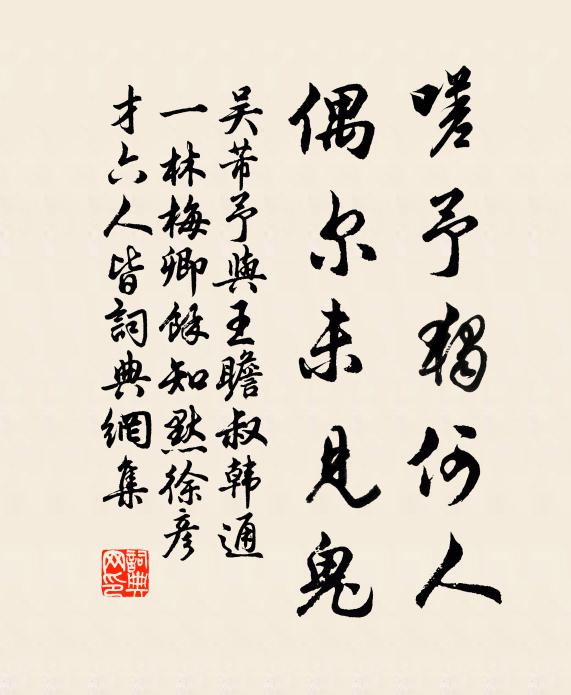 嗟予獨何人
偶尔未見鬼
吳芾予與王瞻叔韓通
一林梅卿餘知默徐彥
才六人皆詞典網集
詞典網印